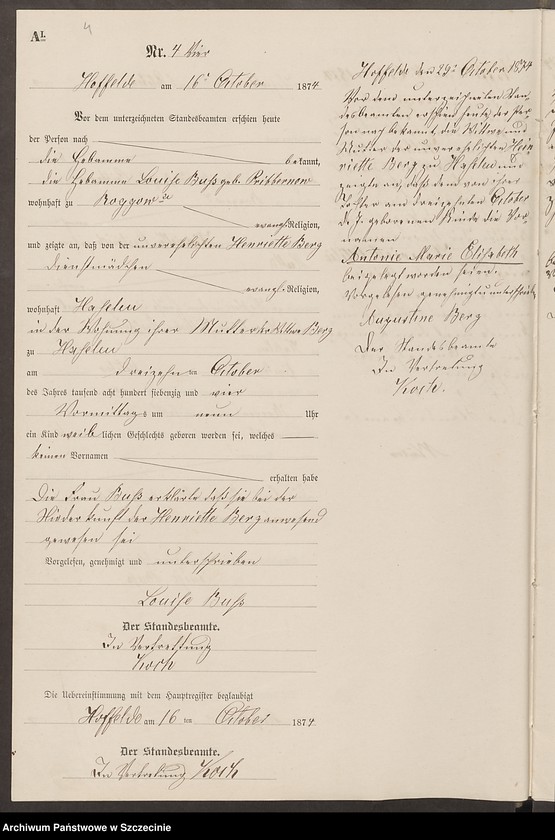 A1.
4
Nr. 4 Vier
Hoffelde am 16ten October 1874.
Vor dem unterzeichneten Standesbeamten erschien heute
der Person nach
die Hebamme bekannt,
die Hebamme Louise Buß geb. Ribbenow
wohnhaft zu Roggow
evangl. Religion,
und zeigte an, daß von der unverehelichten Henriette Berg
Dienstmädchen
evangl. Religion,
wohnhaft Haßeln
in der Wohnung ihrer Mutter Wittwe Berg
zu Haßeln
am dreizehnten October
des Jahres tausend acht hundert siebenzig und vier
Vormittags um neun Uhr
ein Kind weiblichen Geschlechts geboren worden sei, welches
keinen Vornamen
erhalten habe
Die Frau Buß erklärte daß sie bei der
Niederkunft der Henriette Berg anwesend
gewesen sei
Vorgelesen, genehmigt und unterschrieben
Louise Buß
Der Standesbeamte.
In Vertrettung
Koch
Die Uebereinstimmung mit dem Hauptregister beglaubigt
Hoffelde am 16ten October 1874.
Der Standesbeamte.
In Vertretung Koch
Hoffelde den 29ten October 1874
Vor dem unterzeichneten Stan-
desbeamten erschien heute, der Per-
son nach bekannt, die Wittwe und
Mutter der unverehelichten Hein-
riette Berg zu Haßeln und
zeigte an, daß dem von ihrer
Tochter am dreizehnten October
d. J. geborenen Kinde die Vor-
namen
Antonie Marie Elisabeth
beigelegt worden seien.
Vorgelesen genehmigt unterschrieben
Augustine Berg
Der Standesbeamte
In Vertretung
Koch.
Archiwum Państwowe w Szczecinie